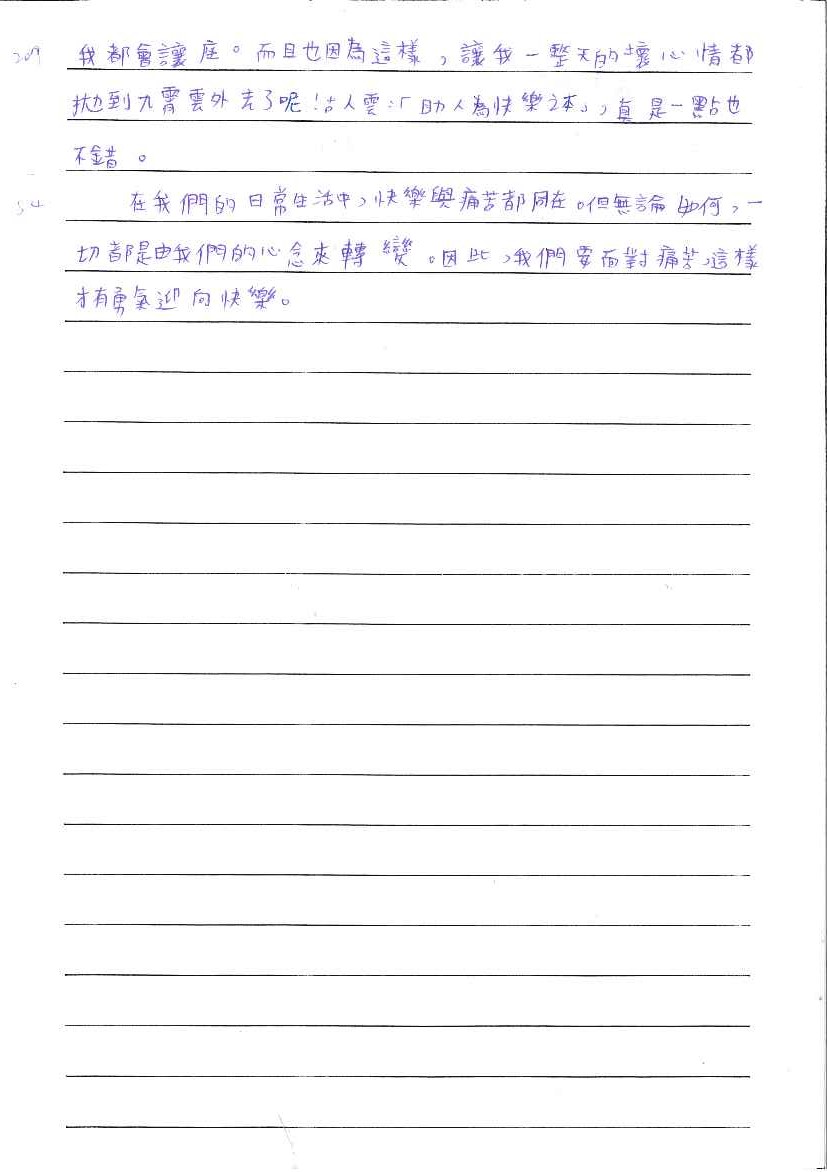 309 我都會讓座。而且也因為這樣,讓我一整天的壞心情都
拋到九霄雲外去了呢!古人雲:「助人為快樂之本」,真是一點也
不錯。
54 在我們的日常生活中,快樂與痛苦都同在。但無論如何,一
切都是由我們的心念來轉變。因此,我們要面對痛苦,這樣
才有勇氣迎向快樂。